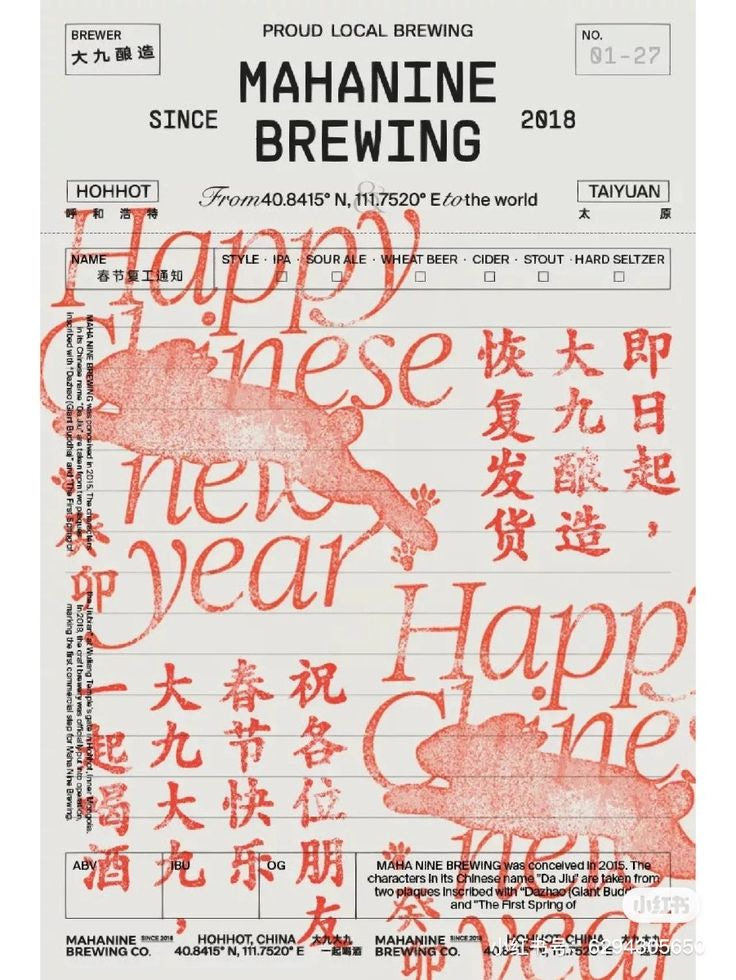 BREWER
大九酿造
PROUD LOCAL BREWING
NO.
01-27
MAHANINE
SINCE
2018
BREWING
HOHHOT
呼和浩特
From 40.8415° N, 111.7520° E to the world
&
TAIYUAN
太原
NAME
春节复工通知
STYLE · IPA · SOUR ALE · WHEAT BEER · CIDER · STOUT · HARD SELTZER
Happy
Chinese
new
year
癸卯
MAHA NINE BREWING was conceived in 2015. The characters
in its Chinese name "Da Jiu" are taken from two plaques
inscribed with "Dazhao (Giant Buddha)" and "The First Spring of
the Jiubian" at Wuliang Temple's gate in Hohhot, Inner Mongolia.
In 2018, the craft brewery was officially put into operation,
marking the first commercial step for Maha Nine Brewing.
即日起，
大九酿造
恢复发货
Happy
Chines
new
year
癸卯
祝各位朋友
春节快乐
大九大九，
一起喝酒
ABV
IBU
OG
MAHA NINE BREWING was conceived in 2015. The
characters in its Chinese name "Da Jiu" are taken from
two plaques inscribed with "Dazhao (Giant Budd
and "The First Spring of
小红书
MAHANINE
BREWING CO.
SINCE 2018
HOHHOT, CHINA
40.8415° N, 111.7520° E
大九大九
一起喝酒
MAHANINE
BREWING CO.
SINCE 2018
HOHHOT, CHINA
40.8415° N, 111.7520° E
小红书号：6294365650